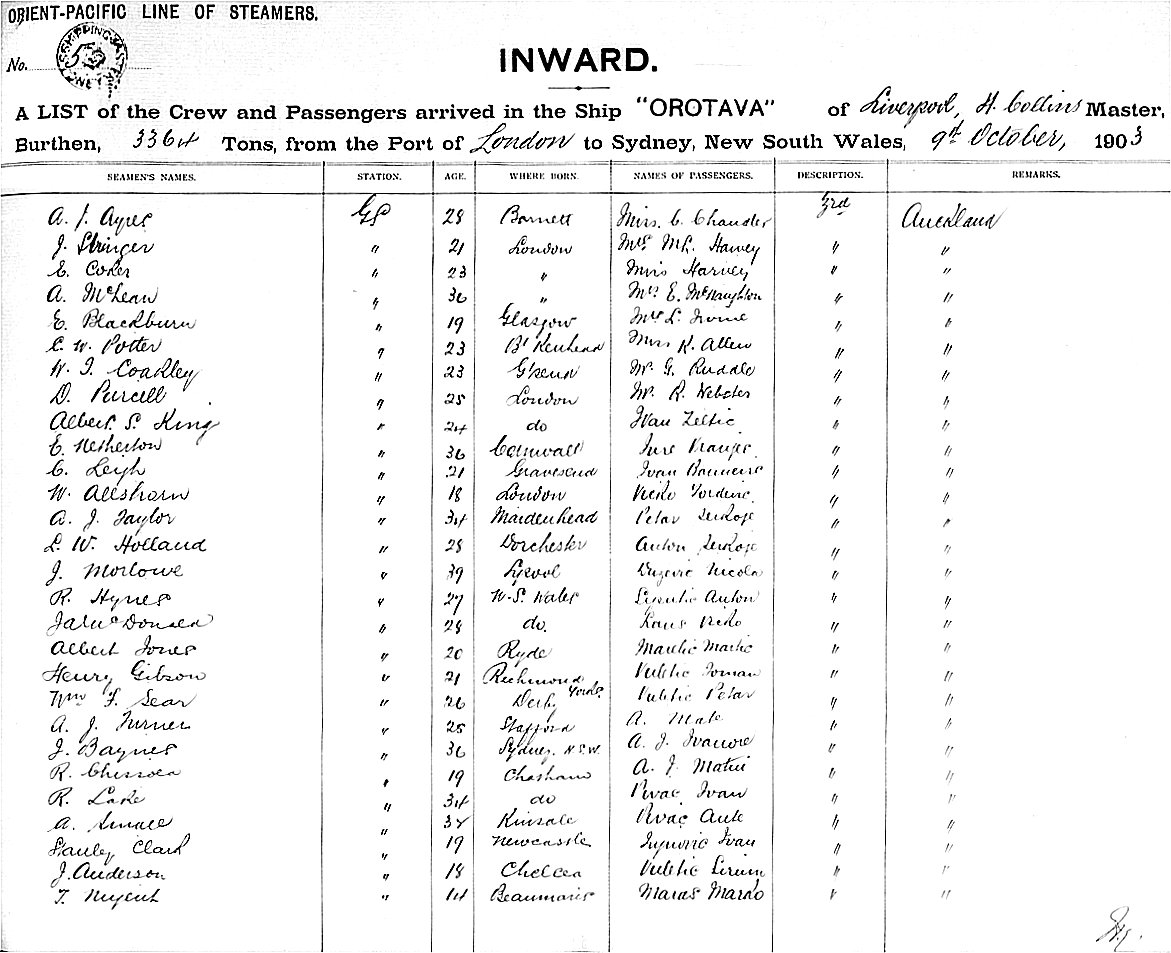 ORIENT-PACIFIC LINE OF STEAMERS.
No.
INWARD.
A LIST of the Crew and Passengers arrived in the Ship "OROTAVA" of Liverpool, H. Collins Master,
Burthen, 3364 Tons, from the Port of London to Sydney, New South Wales, 9th October, 1903
SEAMEN'S NAMES. STATION. AGE. WHERE BORN. NAMES OF PASSENGERS. DESCRIPTION. REMARKS.
A. J. Ayres GS 28 Barnett Miss. C. Chandler 3rd Auckland
J. Stringer " 21 London Mrs. Harvey " "
E. Coker " 23 " Miss Harvey " "
A. McLean " 36 " Mrs E. McNaughton " "
E. Blackburn " 19 Glasgow Mrs L. Irvine " "
C. W. Potter " 23 B'kenhead Miss K. Allen " "
W. J. Coakley " 23 Mr. G. Ruddle " "
D. Purcell " 25 London Mr. R. Webster " "
Albert S. King " 24 do Ivan Zeltic " "
E. Netherton " 36 Cornwall " "
C. Leigh " 21 Gravesend Ivan " "
W. Allshorn " 18 London " "
A. J. Taylor " 34 Maidenhead Petar " "
L. W. Holland " 28 Dorchester Anton " "
J. Morlowe " 39 L'pool Nicola " "
R. Hynes " 27 N.S. Wales Anton " "
Jas McDonald " 28 do. " "
Albert Jones " 20 Ryde " "
Henry Gibson " 21 Richmond Yorks. Vuletic " "
Wm F. Sear " 26 Derby Vuletic Petar " "
A. J. Turner " 25 Stafford A. Mate " "
J. Baynes " 36 Sydney. N.S.W. A. J. " "
R. " 19 Chesham A. J. " "
R. Lake " 34 do Ivan " "
A. " 34 Kinsale Ante " "
Stanley Clark " 19 Newcastle Ivan " "
J. Anderson " 18 Chelsea Vuletic " "
T. Nugent " 14 Beaumaris Maras Marko " "